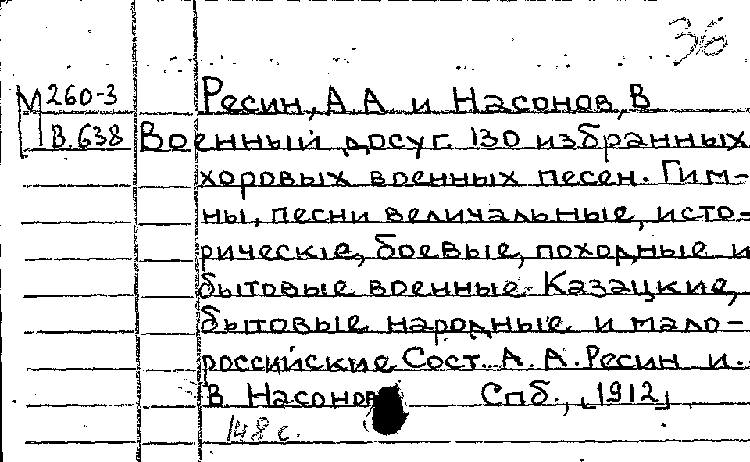 36
М260-3 Ресин, А А и Насонов, В
В.638 Военный досуг. 130 избранных
хоровых военных песен. Гим-
ны, песни величальные, исто-
рическiе, боевые, походные и
бытовые военные. Казацкие,
бытовые народные и мало-
российские Сост. А. А. Ресин и.
В Насонов Спб., [1912]
148 с.